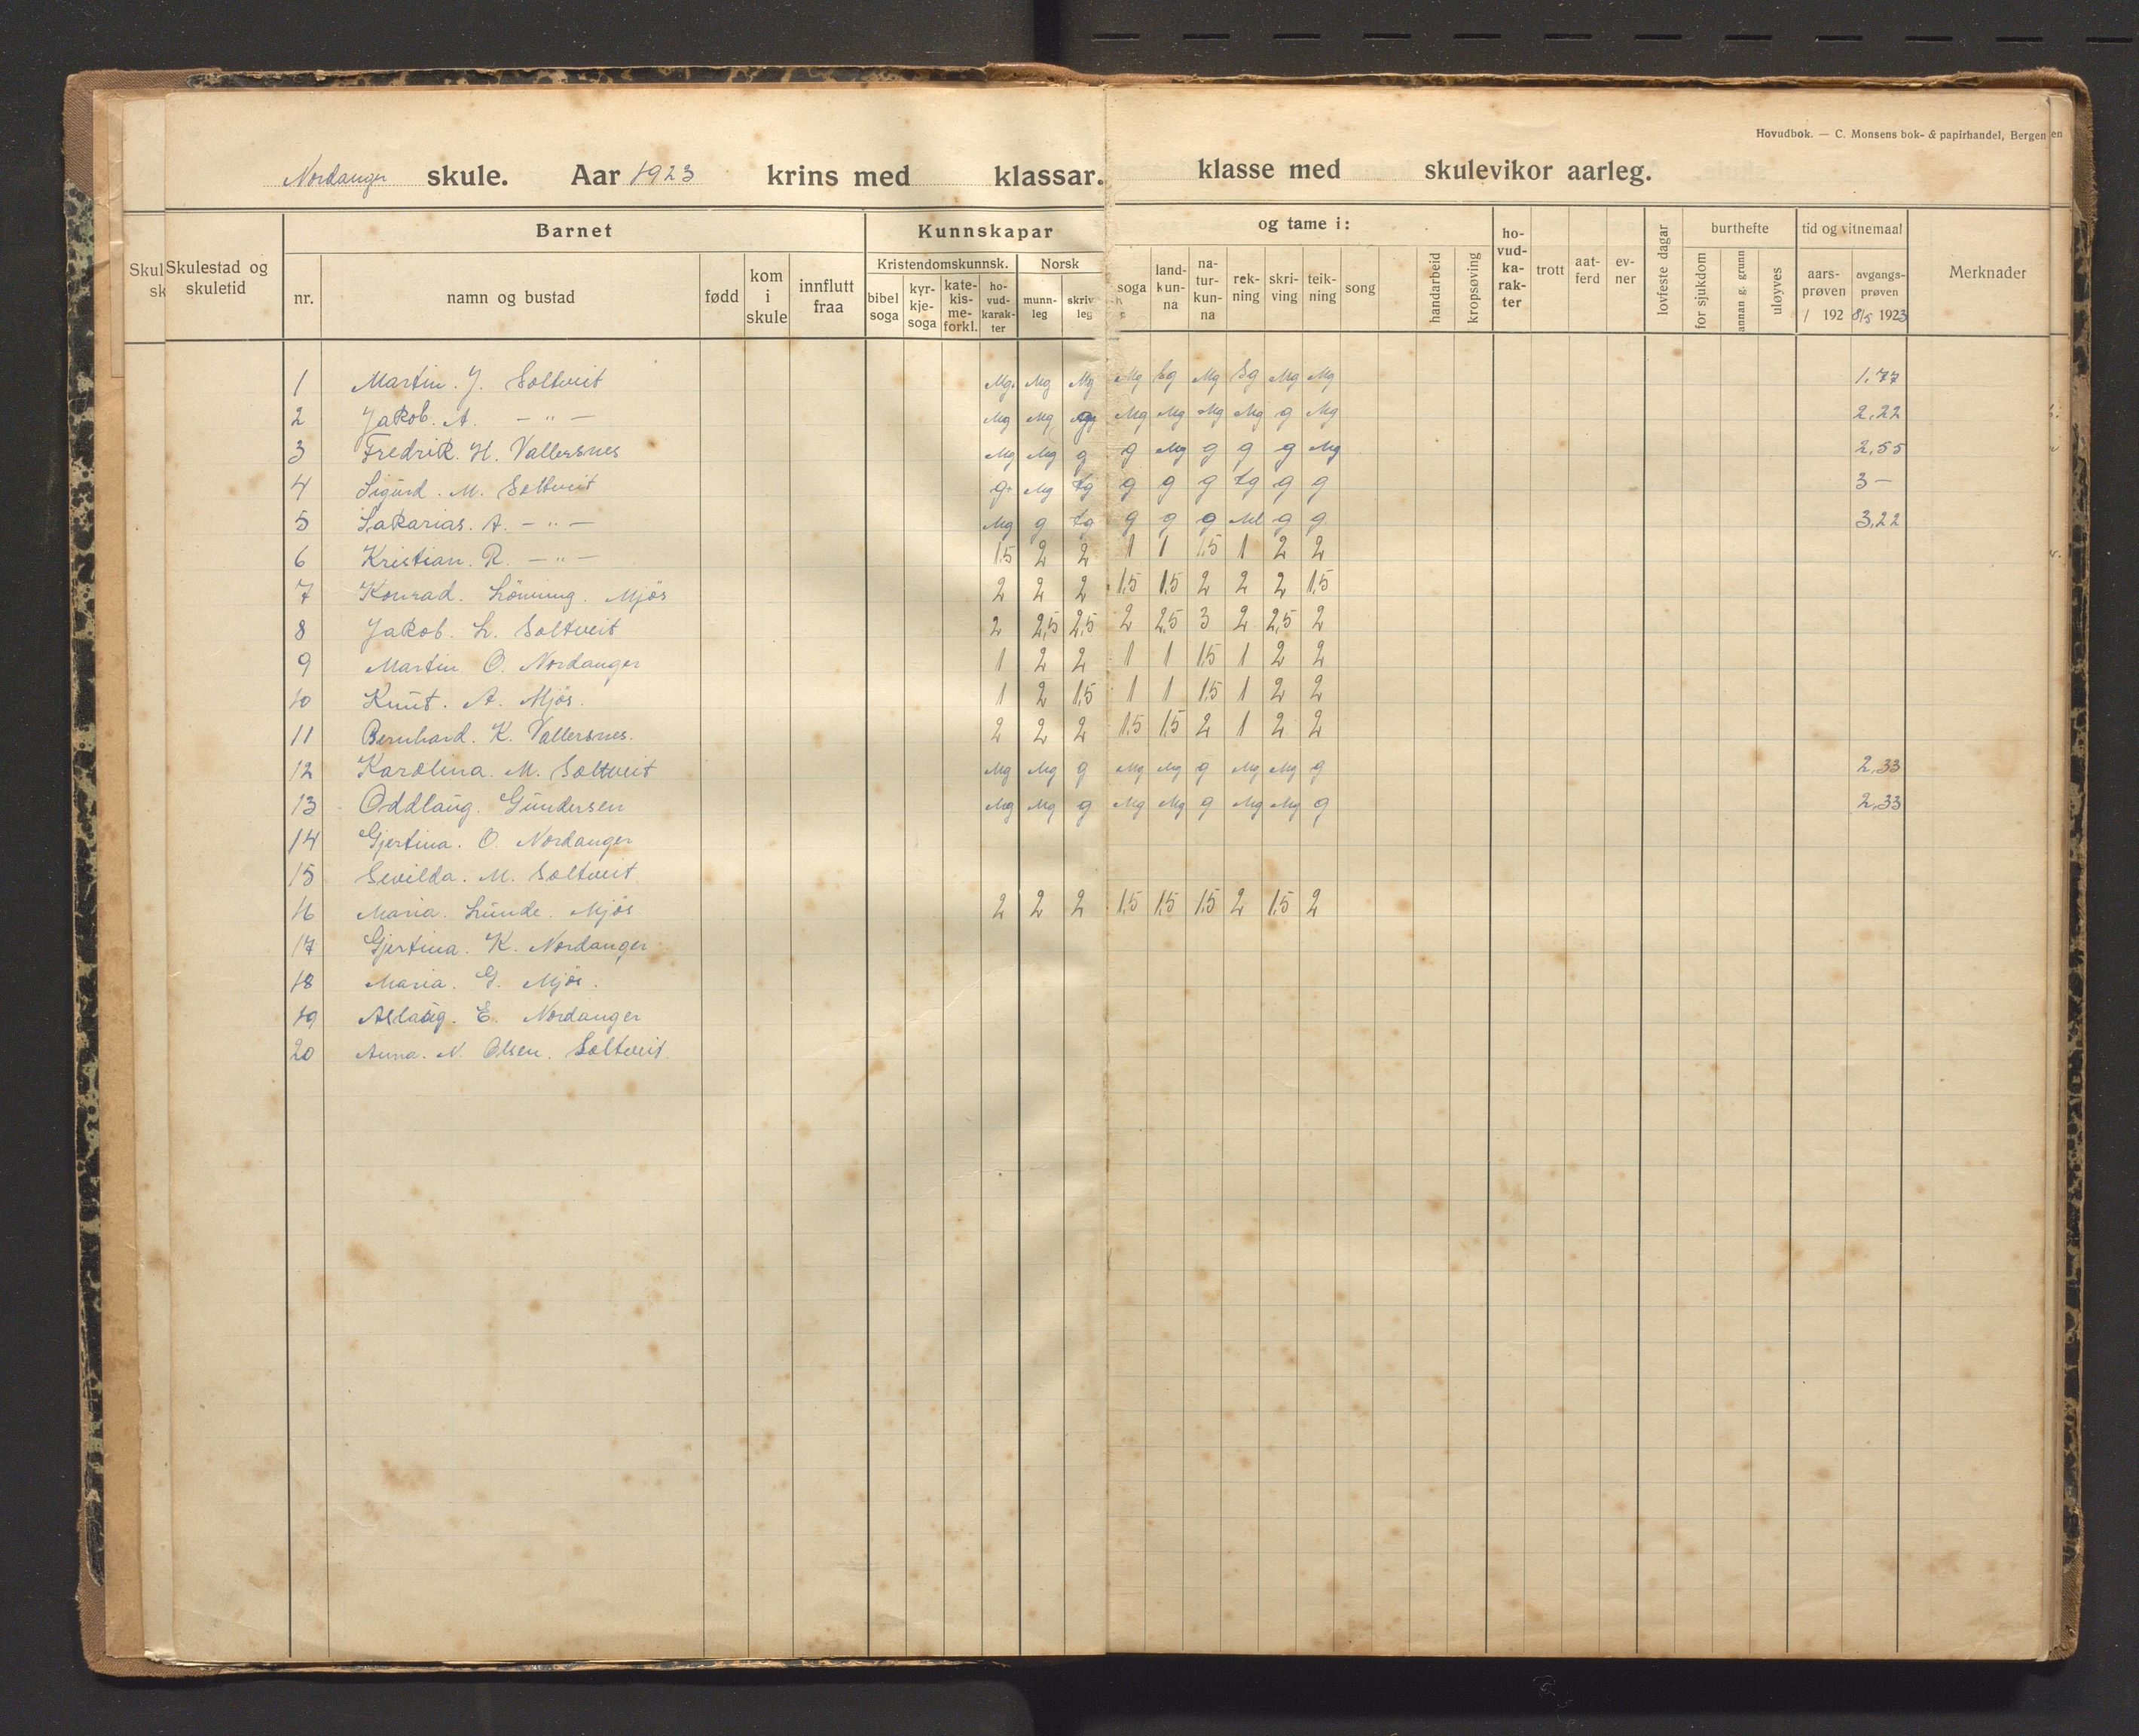 Hovudbok. — C. Monsens bok- & papirhandel, Bergen
Nordanger skule. Aar 1923 krins med klassar. klasse med skulevikor aarleg.
Skulestad og skuletid
Barnet
nr. namn og bustad fødd kom i skule innflutt fraa
Kunnskapar og tame i:
Kristendomskunnsk. Norsk
bibel soga kyr-kje-soga kate-kis-me-forkl. ho-vud-karak-ter munn-leg skriv leg soga land-kun-na na-tur-kun-na rek-ning skri-ving teik-ning song handarbeid kropsøving
ho-vud-ka-rak-ter trott aat-ferd ev-ner lovfeste dagar
burthefte
for sjukdom annan g. grunn uløyves
tid og vitnemaal
aars-prøven / 192 avgangs-prøven 8/5 1923
Merknader
1 Martin. J. Soltveit Mg. Mg Mg Mg Sg Mg Sg Mg Mg 1.77
2 Jakob. A. — " — Mg Mg g Mg Mg Mg Mg g Mg 2,22
3 Fredrik. H. Vallersnes Mg Mg g g Mg g g g Mg 2,55
4 Sigurd. M. Soltveit g. Mg tg g g g tg g g 3 —
5 Sakarias. A. — " — Mg g tg g g g Md g g 3,22
6 Kristian. R. — " — 1.5 2 2 1 1 1.5 1 2 2
7 Konrad. Lönning. Mjös 2 2 2 1.5 1.5 2 2 2 1.5
8 Jakob. L. Soltveit 2 2,5 2,5 2 2,5 3 2 2,5 2
9 Martin O. Nordanger 1 2 2 1 1 1.5 1 2 2
10 Knut. A. Mjös. 1 2 1.5 1 1 1.5 1 2 2
11 Bernhard. K. Vallersnes. 2 2 2 1.5 1.5 2 1 2 2
12 Karolina. M. Soltveit Mg Mg g Mg Mg g Mg Mg g 2,33
13 Oddlaug. Gundersen Mg Mg g Mg Mg g Mg Mg g 2,33
14 Gjertina. O. Nordanger
15 Sevilda. M. Soltveit
16 Maria. Lunde. Mjös 2 2 2 1.5 1.5 1.5 2 1.5 2
17 Gjertina. K. Nordanger
18 Maria. G. Mjös.
19 Aslaug. E. Nordanger
20 Anna. N. Olsen. Soltveit.